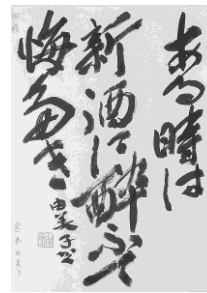 ある時は
新酒に酔ふて
悔多き
由美子